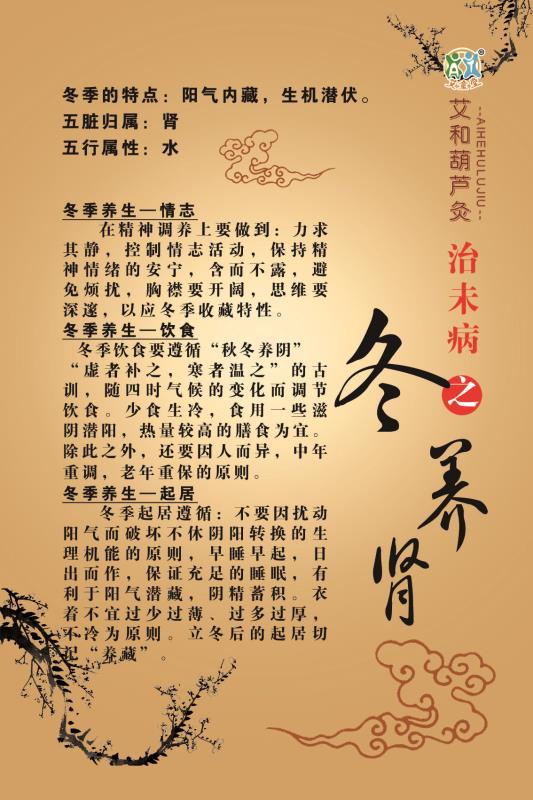 冬季的特点：阳气内藏，生机潜伏。
五脏归属：肾
五行属性：水
冬季养生—情志
在精神调养上要做到：力求
其静，控制情志活动，保持精
神情绪的安宁，含而不露，避
免烦扰，胸襟要开阔，思维要
深邃，以应冬季收藏特性。
冬季养生—饮食
冬季饮食要遵循“秋冬养阴”
“虚者补之，寒者温之”的古
训，随四时气候的变化而调节
饮食。少食生冷，食用一些滋
阴潜阳，热量较高的膳食为宜。
除此之外，还要因人而异，中年
重调，老年重保的原则。
冬季养生—起居
冬季起居遵循：不要因扰动
阳气而破坏不休阴阳转换的生
理机能的原则，早睡早起，日
出而作，保证充足的睡眠，有
利于阳气潜藏，阴精蓄积。衣
着不宜过少过薄、过多过厚，
不冷为原则。立冬后的起居切
记“养藏”。
艾和葫芦灸
--AIHEHULUJIU--
治未病之
冬养肾